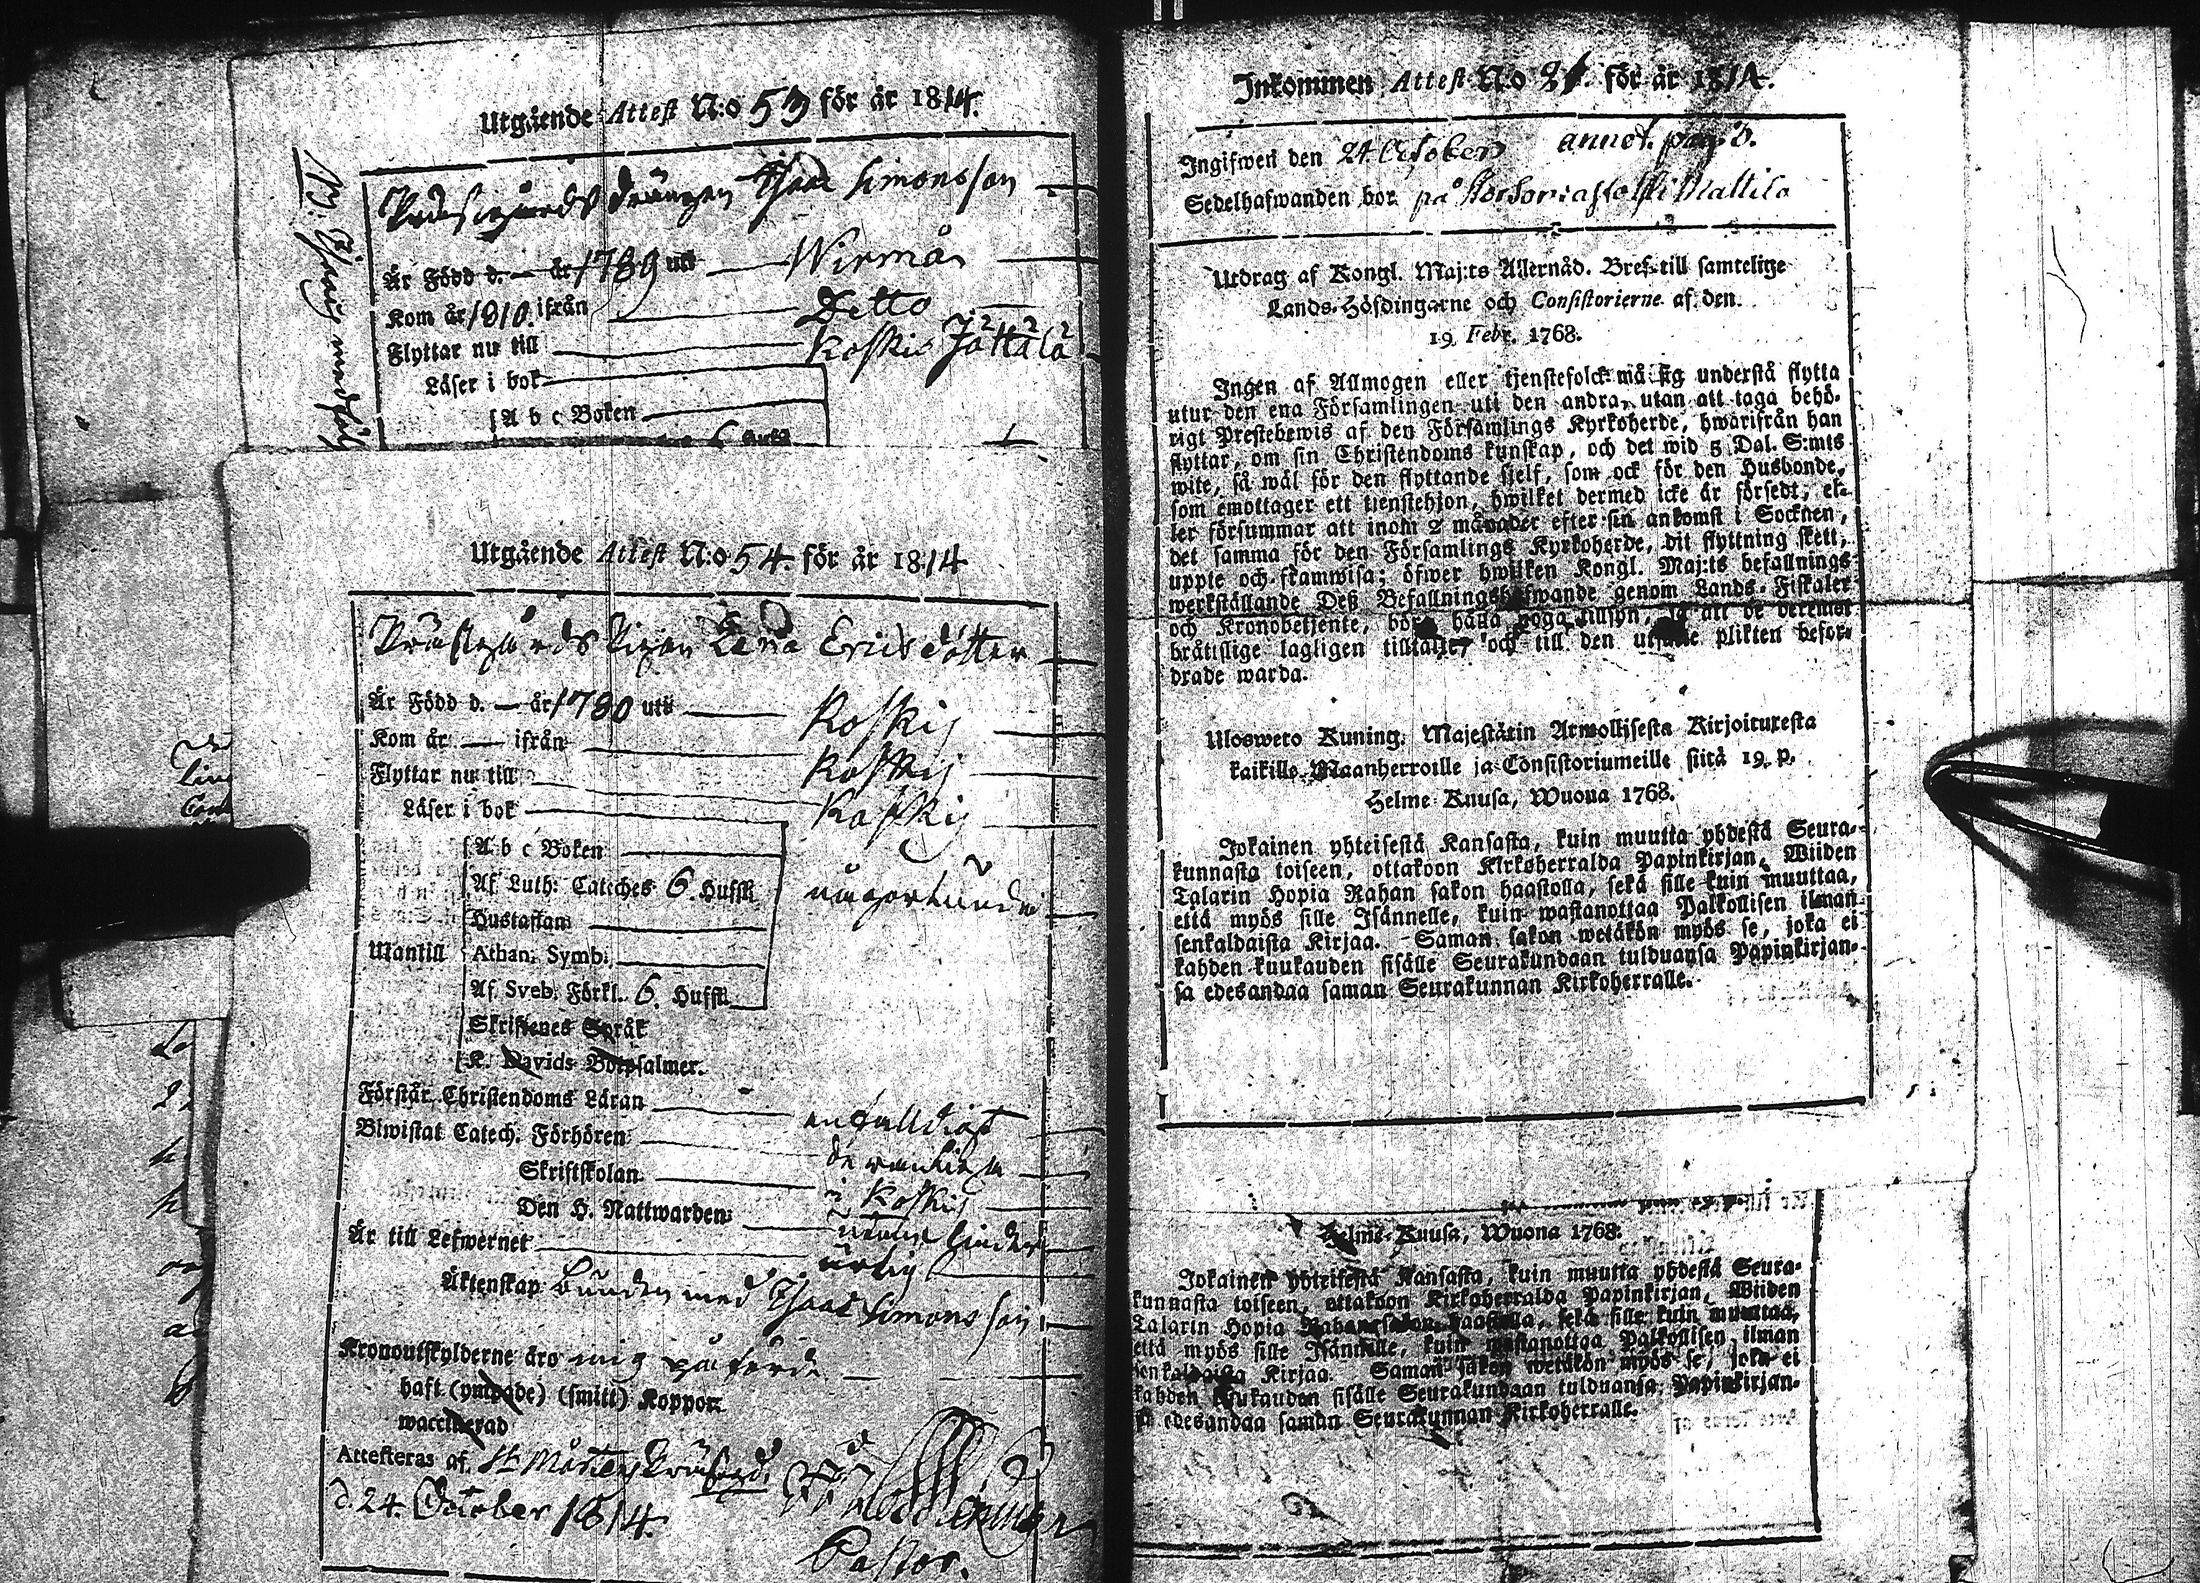 Utgående Attest N:o 53 för år 1814.
Prästegårds Drängen Isaac Simonsson
Är Född d. — år 1789 uti Wirmå
Kom år 1810. ifrån Detto
Flyttar nu till Koskis Jättälä
Läser i bok
A b c Boken
Utgående Attest N:o 54. för år 1814
Prästegårds Pigan Lena Ericsdotter
Är Född d. — år 1780 uti Koskis
Kom år — ifrån Koskis
Flyttar nu till Koskis
Läser i bok
A b c Boken
Af Luth: Cateches 6. Hufst.
Hustaflan
Utantill Athan. Symb.
Af Sveb. Förkl. 6. Hufst.
Skriftenes Språk
K. Davids Botpsalmer.
Förstår Christendoms Läran enfaldigt
Biwistat Catech. Förhören
Skriftskolan i Koskis
Den H. Nattwarden
Är till Lefwernet ärlig
Äktenskap bunden med Isaac Simonsson
Kronoutskylderne äro mig påförde
haft (ympade) (smitt) Koppor
waccinerad
Attesteras af St Mårtens Prästgård
d. 24. October 1814.
Pastor.
Inkommen Attest N:o 21. för år 1814.
Ingifwen den 24 October annot. pag.
Sedelhafwanden bor på Mattila
Utdrag af Kongl. Maj:ts Allernåd. Bref till samtelige
Lands-Höfdingarne och Consistorierne af den
19 Febr. 1768.
Ingen af Allmogen eller tjenstefolck må sig understå flytta
utur den ena Församlingen uti den andra, utan att taga behö-
rigt Prestebewis af den Församlings Kyrkoherde, hwarifrån han
flyttar, om sin Christendoms kunskap, och det wid 5 Dal. S:mts
wite, så wäl för den flyttande sjelf, som ock för den Husbonde,
som emottager ett tienstehjon, hwilket dermed icke är försedt, el-
ler försummar att inom 2 månader efter sin ankomst i Socknen,
det samma för den Församlings Kyrkoherde, dit flyttning skett,
uppte och framwisa; öfwer hwilken Kongl. Maj:ts befallnings
werkställande Deß Befallningshafwande genom Lands-Fiskaler
och Kronobetjente, böra hålla noga tillsyn, så att de deremot
brätislige lagligen tilltalte och till den utsatte plikten befor-
drade warda.
Ulosweto Kuning. Majestätin Armollisesta Kirjoituxesta
kaikille Maanherroille ja Consistoriumeille siitä 19. p.
Helme-Kuusa, Wuona 1768.
Jokainen yhteisestä Kansasta, kuin muutta yhdestä Seura-
kunnasta toiseen, ottakoon Kirkoherralda Papinkirjan, Wiiden
Talarin Hopia Rahan sakon haastolla, sekä sille kuin muuttaa,
että myös sille Isännelle, kuin wastanottaa Palkollisen ilman
senkaldaista Kirjaa. Saman sakon wetäkön myös se, joka ei
kahden kuukauden sisälle Seurakundaan tulduansa Papinkirjan-
sa edesandaa saman Seurakunnan Kirkoherralle.
Helme-Kuusa, Wuona 1768.
Jokainen yhteisestä Kansasta, kuin muutta yhdestä Seura-
kunnasta toiseen, ottakoon Kirkoherralda Papinkirjan, Wiiden
Talarin Hopia Rahan sakon haastolla, sekä sille kuin muuttaa,
että myös sille Isännelle, kuin wastanottaa Palkollisen ilman
senkaldaista Kirjaa. Saman sakon wetäkön myös se, joka ei
kahden kuukauden sisälle Seurakundaan tulduansa Papinkirjan-
sa edesandaa saman Seurakunnan Kirkoherralle.